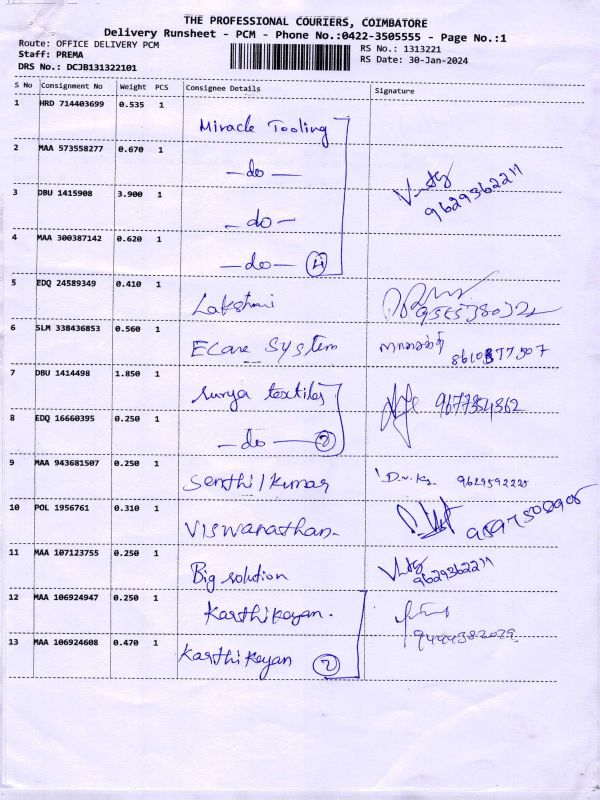 THE PROFESSIONAL COURIERS, COIMBATORE
Delivery Runsheet - PCM - Phone No.:0422-3505555 - Page No.:1
Route: OFFICE DELIVERY PCM RS No.: 1313221
Staff: PREMA RS Date: 30-Jan-2024
DRS No.: DCJB131322101
S No Consignment No Weight PCS Consignee Details Signature
1 HRD 714403699 0.535 1 Miracle Tooling
2 MAA 573558277 0.670 1 -do-
9629362211
3 DBU 1415908 3.900 1 -do-
4 MAA 300387142 0.620 1 -do- 4
5 EDQ 24589349 0.410 1 Lakshmi
6 SLM 338436853 0.560 1 ECare System
7 DBU 1414498 1.850 1 Surya textiles
8 EDQ 16660395 0.250 1 -do- 2
9 MAA 943681507 0.250 1 Senthilkumar 9629592225
10 POL 1956761 0.310 1 Viswanathan-
11 MAA 107123755 0.250 1 Big solution 9629362211
12 MAA 106924947 0.250 1 Karthikeyan.
13 MAA 106924608 0.470 1 Karthikeyan 2